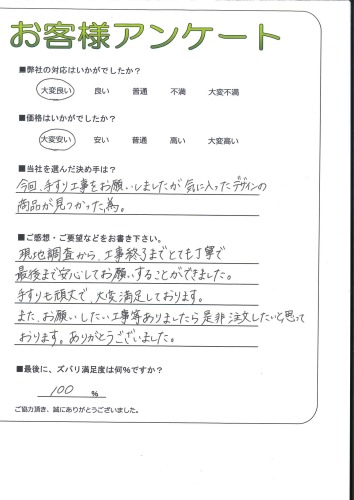 お客様アンケート
■弊社の対応はいかがでしたか？
大変良い 良い 普通 不満 大変不満
■価格はいかがでしたか？
大変安い 安い 普通 高い 大変高い
■当社を選んだ決め手は？
今回、手すり工事をお願いしましたが気に入ったデザインの
商品が見つかった為。
■ご感想・ご要望などをお書き下さい。
現地調査から、工事終了までとても丁寧で
最後まで安心してお願いすることができました。
手すりも頑丈で、大変満足しております。
また、お願いしたい工事等ありましたら是非注文したいと思って
おります。ありがとうございました。
■最後に、ズバリ満足度は何％ですか？
100 ％
ご協力頂き、誠にありがとうございました。